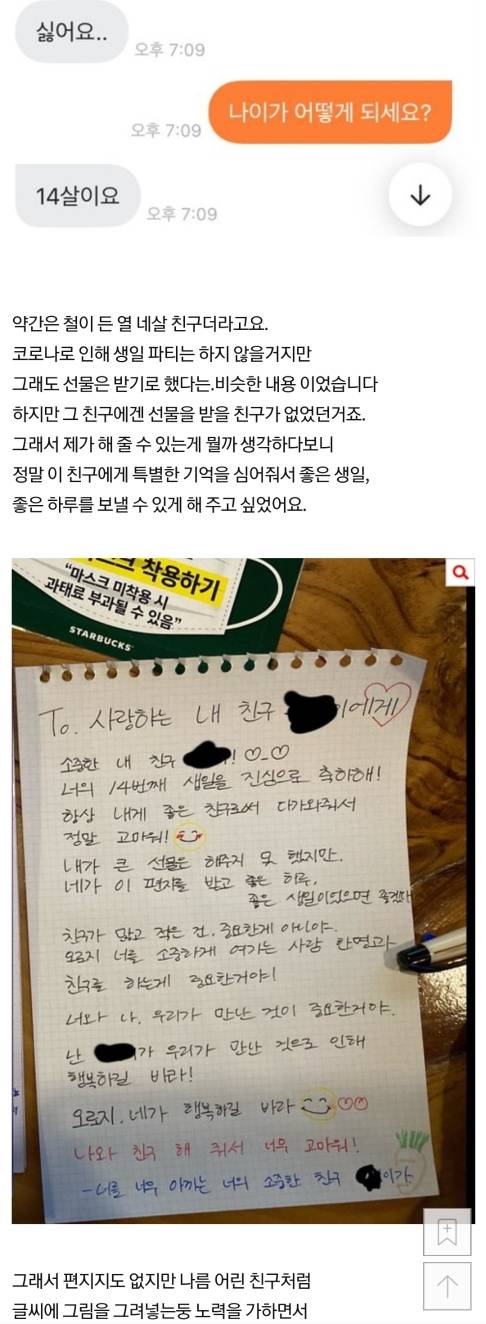 싫어요..
오후 7:09
나이가 어떻게 되세요?
오후 7:09
14살이요
오후 7:09
약간은 철이 든 열 네살 친구더라고요.
코로나로 인해 생일 파티는 하지 않을거지만
그래도 선물은 받기로 했다는.비슷한 내용 이었습니다
하지만 그 친구에겐 선물을 받을 친구가 없었던거죠.
그래서 제가 해 줄 수 있는게 뭘까 생각하다보니
정말 이 친구에게 특별한 기억을 심어줘서 좋은 생일,
좋은 하루를 보낼 수 있게 해 주고 싶었어요.
마스크 착용하기
“마스크 미착용 시
과태료 부과될 수 있음”
STARBUCKS
To. 사랑하는 내 친구 이에게
소중한 내 친구 !
너의 14번째 생일을 진심으로 축하해!
항상 내게 좋은 친구로서 다가와줘서
정말 고마워!
내가 큰 선물은 해주지 못 했지만.
네가 이 편지를 받고 좋은 하루,
좋은 생일이었으면 좋겠다
친구가 많고 적은 건, 중요한게 아니야.
오로지 너를 소중하게 여기는 사람 한명과
친구를 하는게 중요한거야!
너와 나, 우리가 만난 것이 중요한거야.
난 가 우리가 만난 것으로 인해
행복하길 바라!
오로지, 네가 행복하길 바라
나와 친구 해 줘서 너무 고마워!
-너를 너무 아끼는 너의 소중한 친구 이가
그래서 편지지도 없지만 나름 어린 친구처럼
글씨에 그림을 그려넣는둥 노력을 가하면서